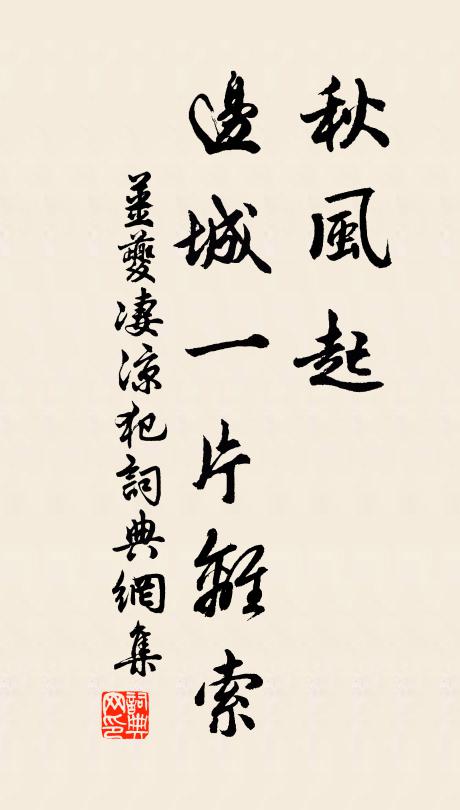 秋風起
邊城一片離索
薑夔凄涼犯詞典網集
詞典网印